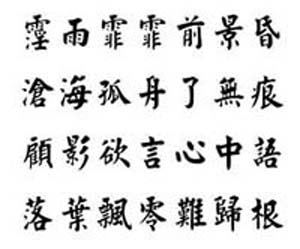 霪雨霏霏前景昏
滄海孤舟了無痕
顧影欲言心中語
落葉飄零難歸根